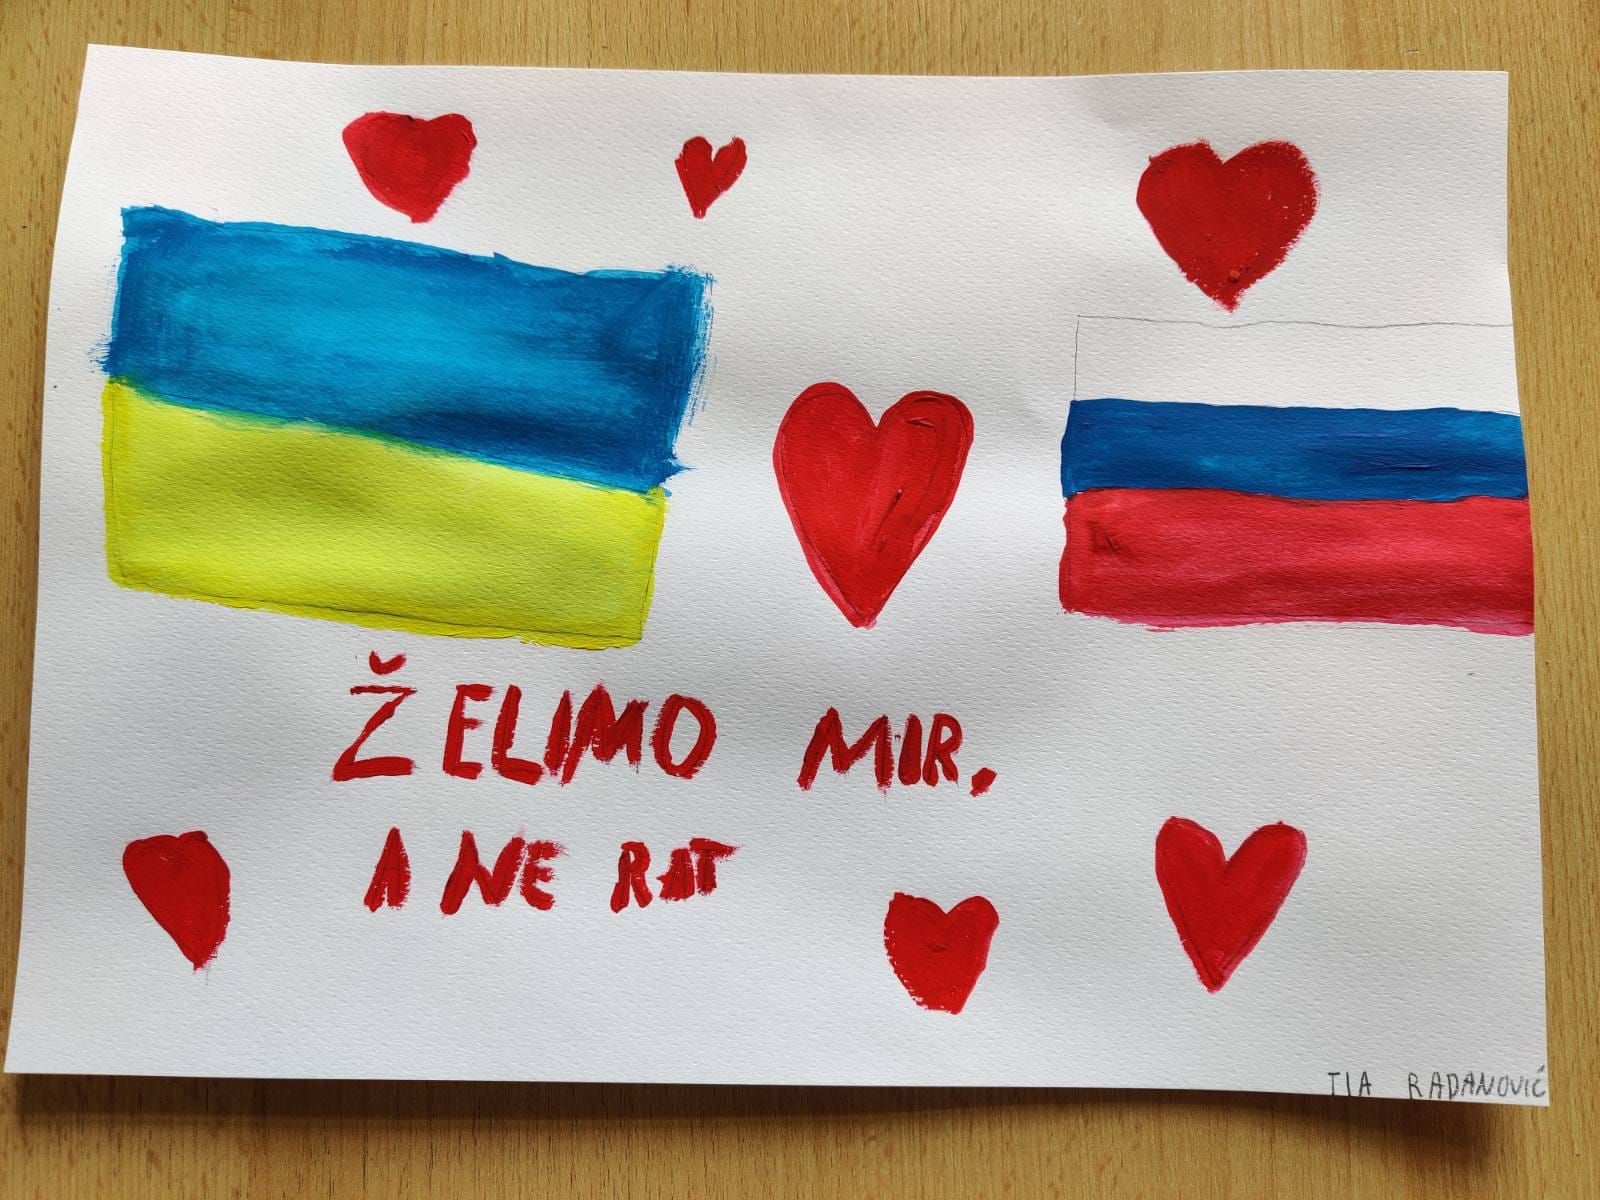 ŽELIMO MIR,
A NE RAT
TIA RADANOVIĆ